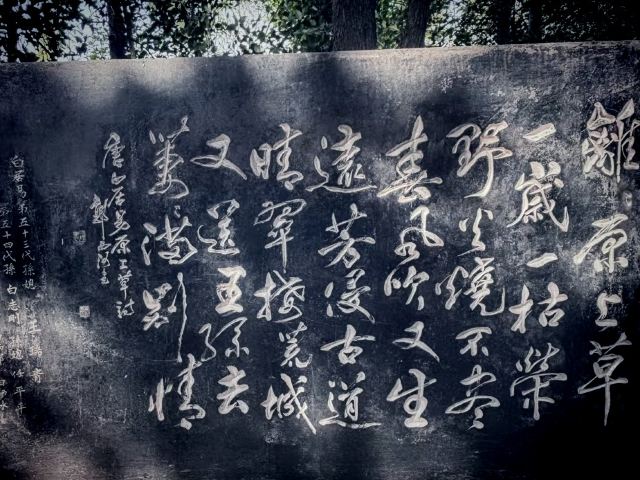 離原上草
一歲一枯榮
野火燒不盡
春風吹又生
遠芳侵古道
晴翠接荒城
又送王孫去
萋々滿別情
唐白居易原上草詩
白居易第五十三代孫媳
第五十四代孫